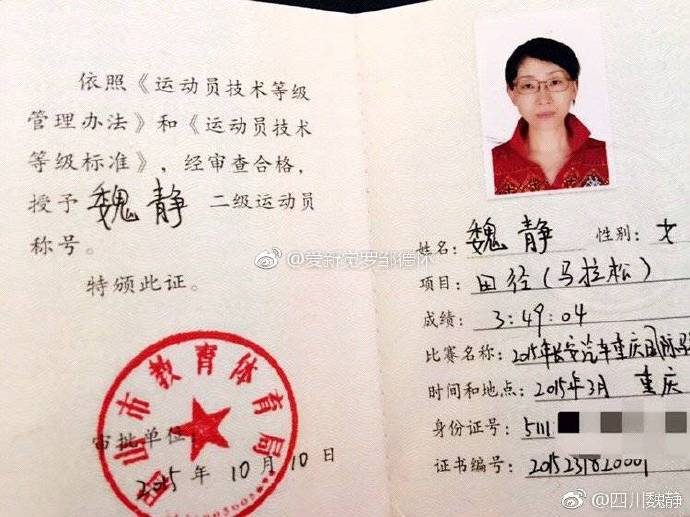 依照《运动员技术等级
管理办法》和《运动员技术
等级标准》，经审查合格，
授予 魏静 二级运动员
称号。
特颁此证。
山市教育体育局
审批单位
2015年10月10日
姓名：魏静 性别：女
项目：田径（马拉松）
成绩：3:49:04
比赛名称：2015年长安汽车重庆国际马
时间和地点：2015年3月 重庆
身份证号：5111
证书编号：2015231620001
@爱新觉罗邹德怀
@四川魏静